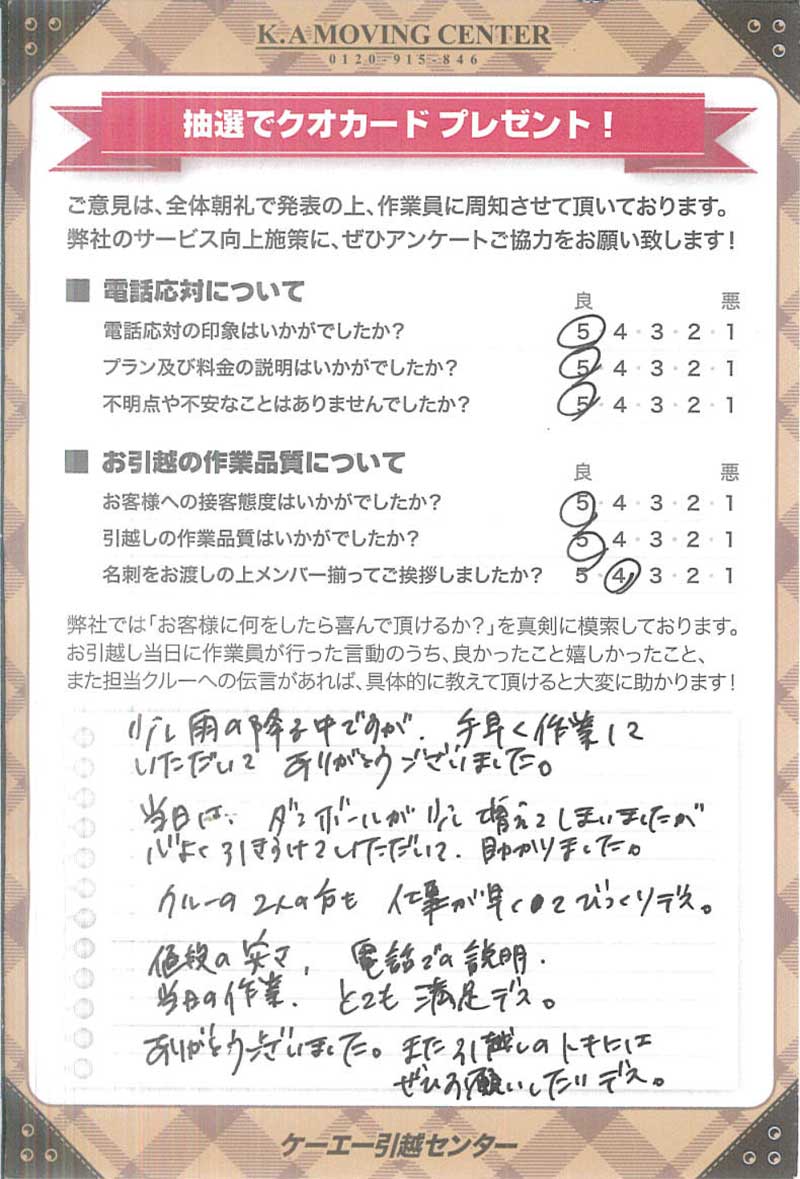 K.A MOVING CENTER
0120-915-846
抽選でクオカード プレゼント！
ご意見は、全体朝礼で発表の上、作業員に周知させて頂いております。
弊社のサービス向上施策に、ぜひアンケートご協力をお願い致します！
■ 電話応対について
良 悪
電話応対の印象はいかがでしたか？ 5・4・3・2・1
プラン及び料金の説明はいかがでしたか？ 5・4・3・2・1
不明点や不安なことはありませんでしたか？ 5・4・3・2・1
■ お引越の作業品質について
良 悪
お客様への接客態度はいかがでしたか？ 5・4・3・2・1
引越しの作業品質はいかがでしたか？ 5・4・3・2・1
名刺をお渡しの上メンバー揃ってご挨拶しましたか？ 5・4・3・2・1
弊社では「お客様に何をしたら喜んで頂けるか？」を真剣に模索しております。
お引越し当日に作業員が行った言動のうち、良かったこと嬉しかったこと、
また担当クルーへの伝言があれば、具体的に教えて頂けると大変に助かります！
少し雨の降る中ですが、手早く作業して
いただいて ありがとうございました。
当日は、ダンボールが少し増えてしまいましたが
心よく引きうけていただいて、助かりました。
クルーの2人の方も 仕事が早くてびっくりデス。
値段の安さ、電話での説明、
当日の作業、とても満足デス。
ありがとうございました。また引越しのトキには
ぜひお願いしたいデス。
ケーエー引越センター